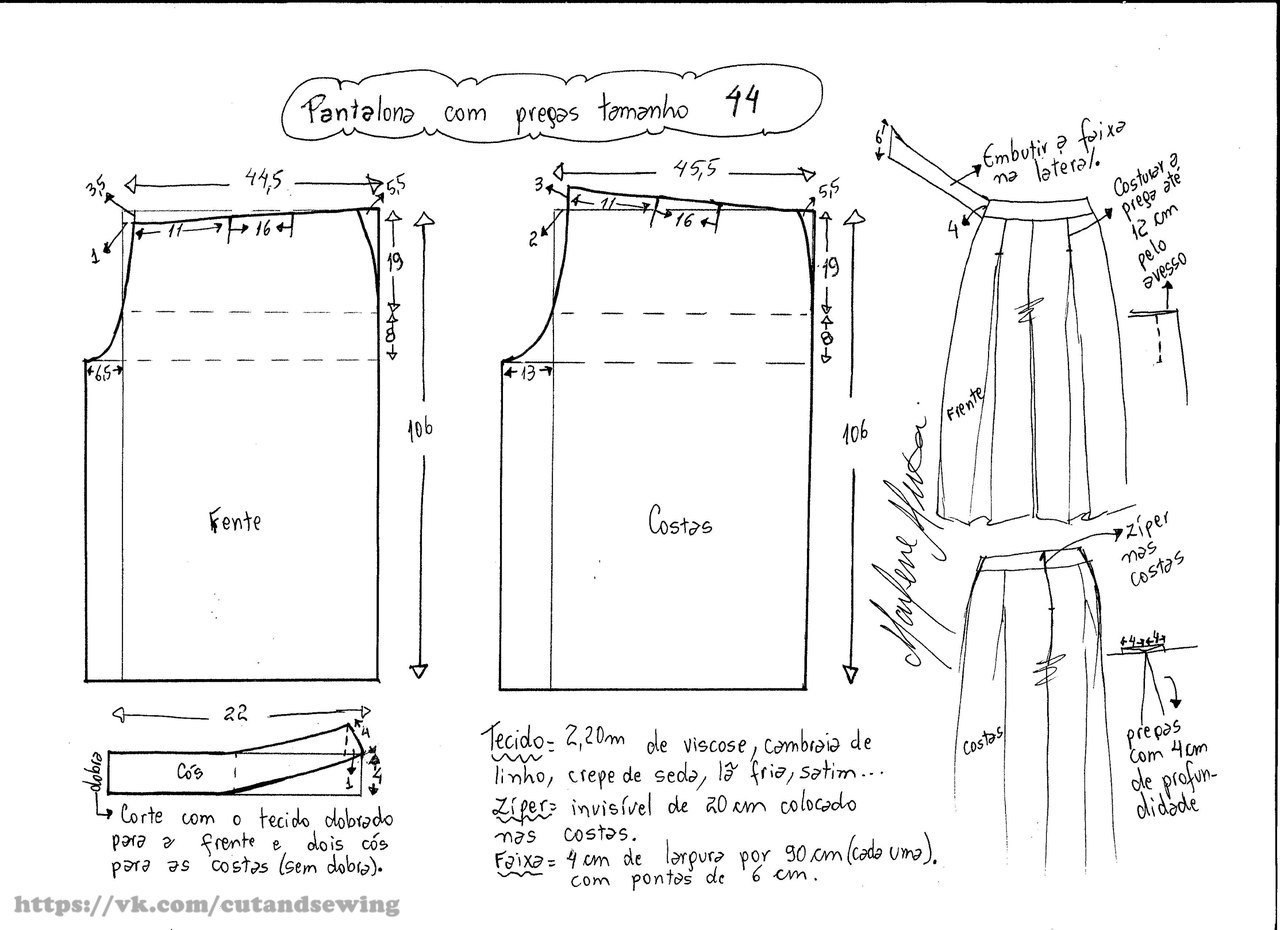 Pantalona com pregas tamanho 44
44,5
3,5
5,5
1
11
16
19
8
6,5
106
Frente
45,5
3
5,5
2
11
16
19
8
13
106
Costas
6
Embutir a faixa
na lateral.
4
Costurar a
prega até
12 cm
pelo
avesso
Frente
Marlene Mukai
Zíper
nas
costas
Costas
4 4
pregas
com 4 cm
de profun-
didade
22
dobra
Cós
4
1
4
Corte com o tecido dobrado
para a frente e dois cós
para as costas (sem dobra).
Tecido = 2,20m de viscose, cambraia de
linho, crepe de seda, lã fria, satim...
Zíper = invisível de 20 cm colocado
nas costas.
Faixa = 4 cm de largura por 90 cm (cada uma).
com pontas de 6 cm.
https://vk.com/cutandsewing